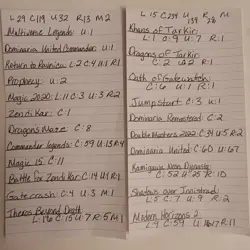 L 29 C 119 U 32 R 13 M 2
Multiverse Legends: U:1
Dominaria United Commander: U:1
Return to Ravnica: L:2 C:4 U:1 R:1
Prophecy: U:2
Magic 2020: L:11 C:3 U:3 R:2
Zendikar: C:1
Dragons Maze: C:8
Commander Legends: C:59 U:13 R:4
Magic 15: C:11
Battle for Zendikar: C:14 U:1 R:1
Gatecrash: C:4 U:3 M:1
Theros Beyond Death:
L:16 C:15 U:7 R:5 M:1
L 15 C 234 U 139 R 38 M
Khans of Tarkir:
L:1 C:9 U:7 R:1
Dragons of Tarkir:
C:2 U:2 R:1
Oath of Gatewatch:
C:6 U:1 R:1
Jumpstart: C:3 U:1
Dominaria Remastered: C:2
Double Masters 2022: C:34 U:5 R:2
Dominaria United: C:60 U:67
Kamigawa Neon Dynasty:
C:52 U:25 R:10
Shadows over Innistrad:
L:5 C:7 U:5 R:2
Modern Horizons 2
L:9 C:59 R:11